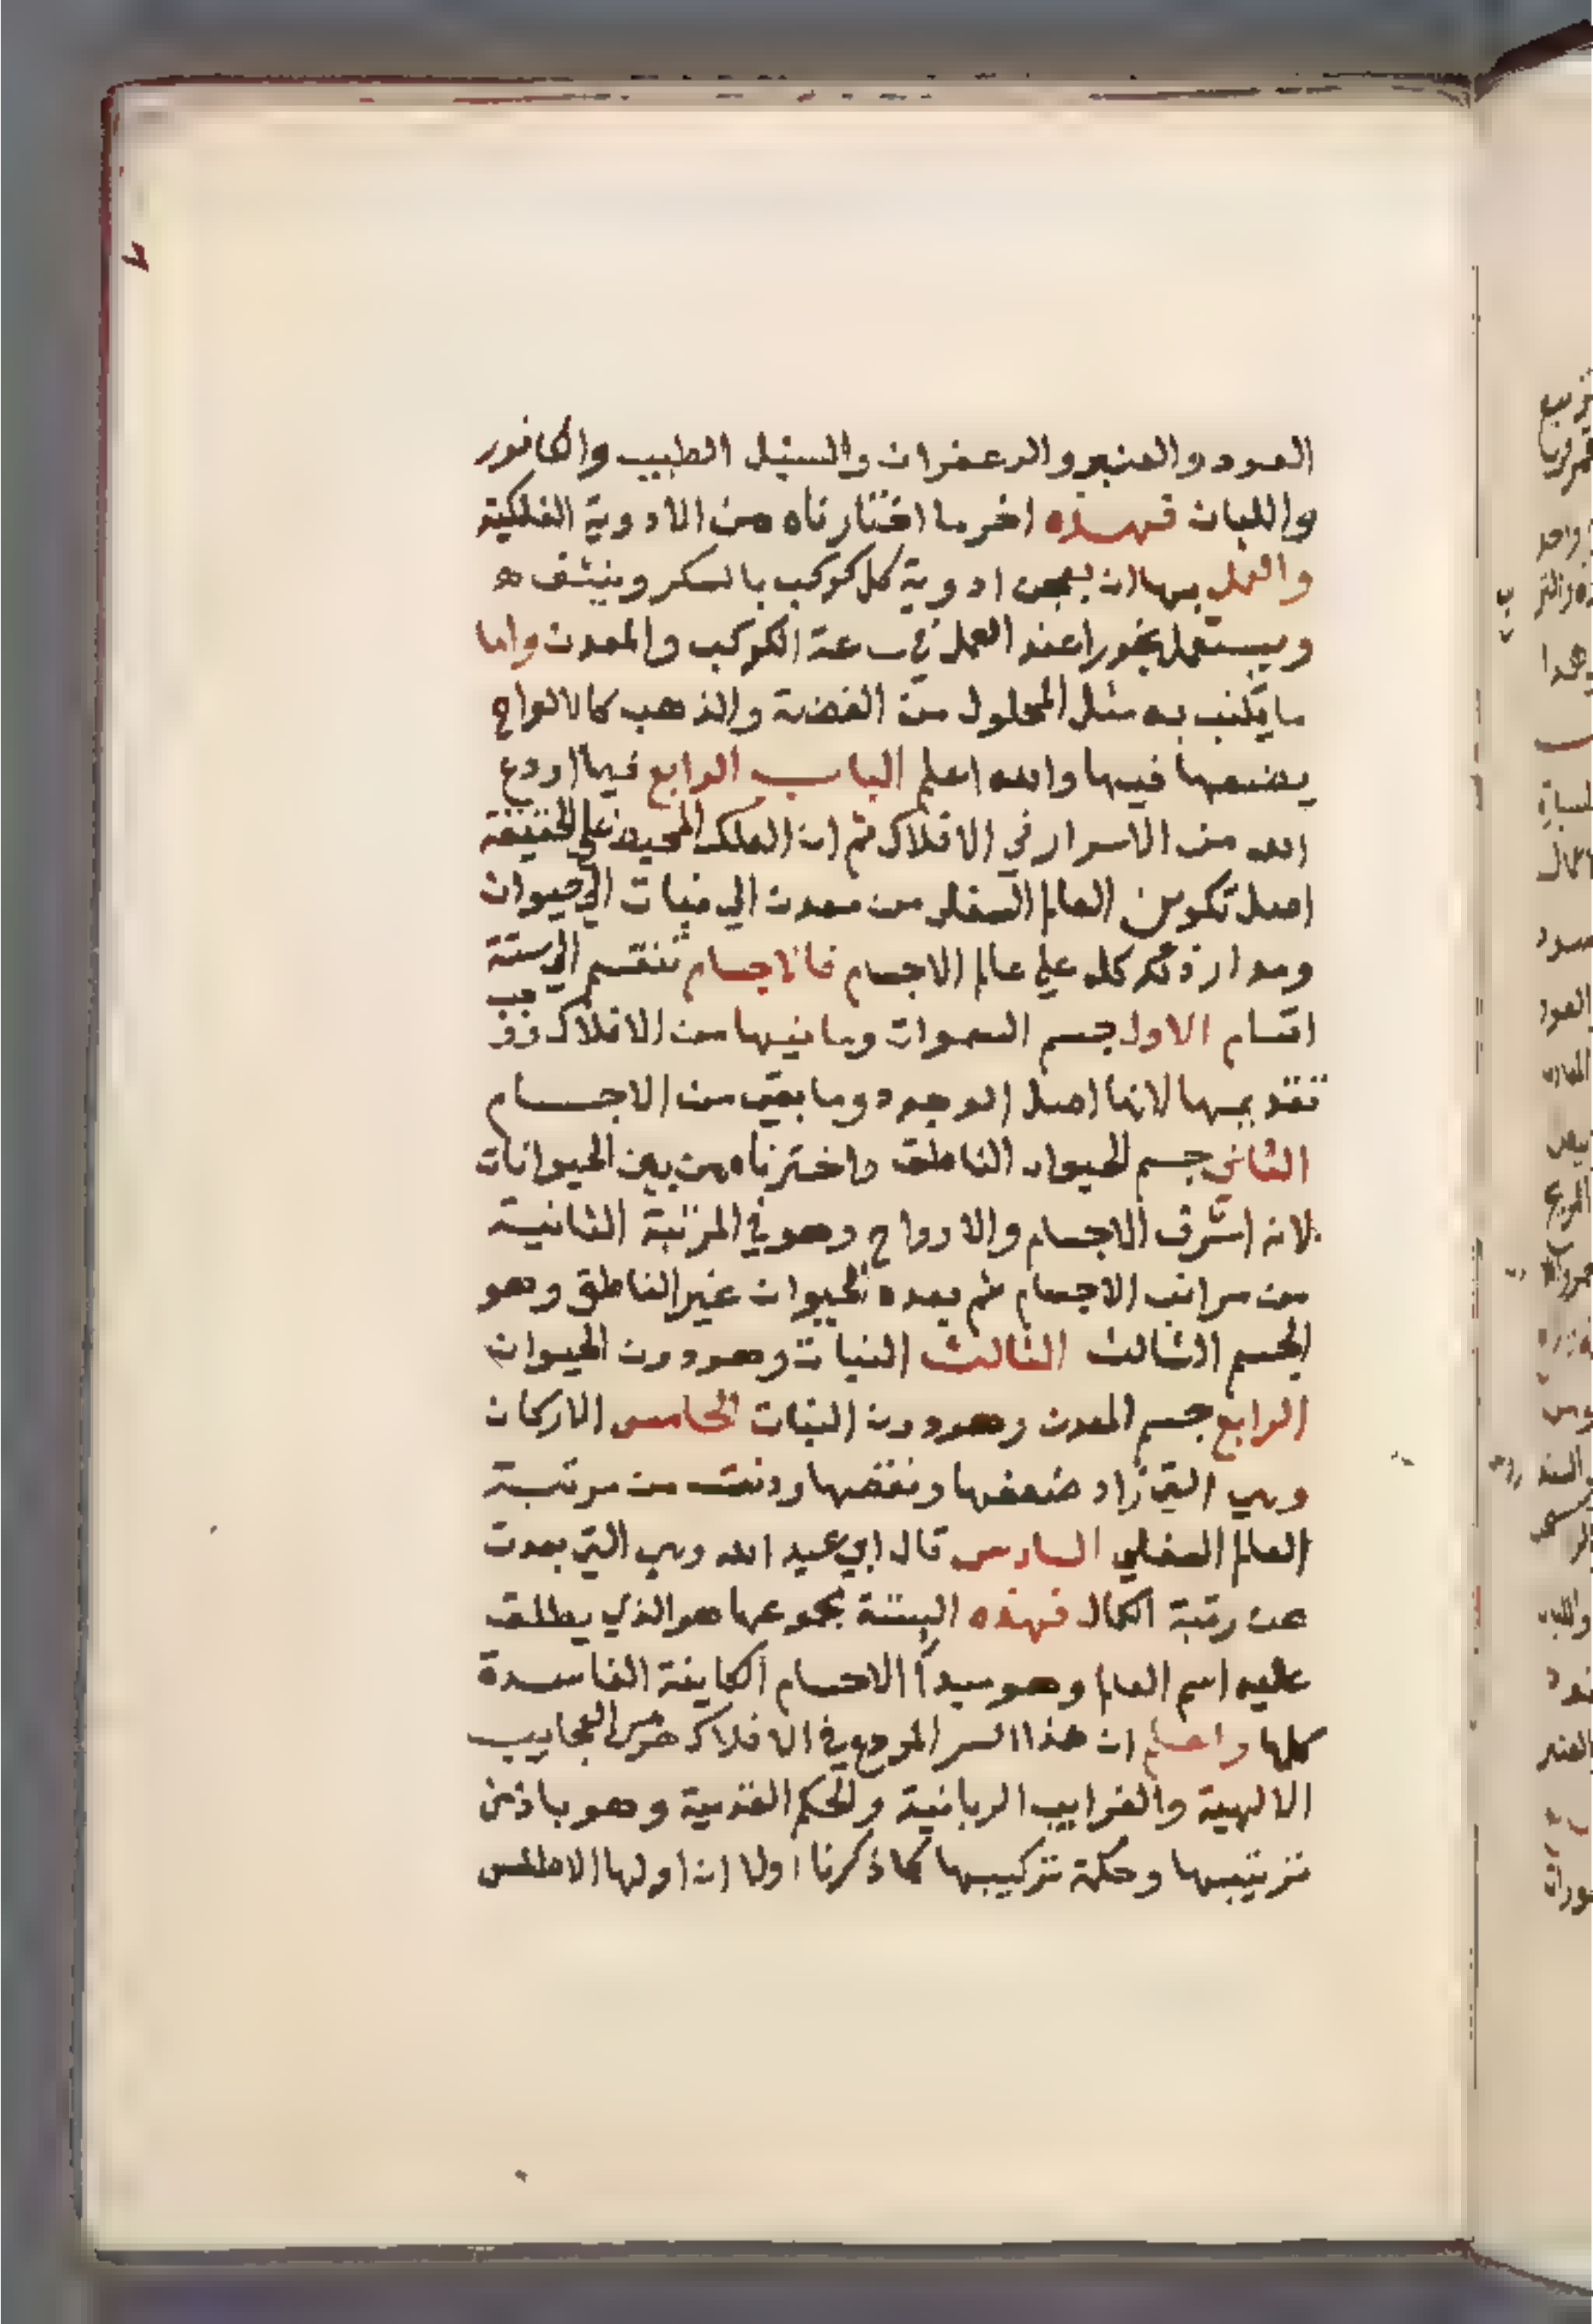 العود والعنبر والزعفران والسنبل الطيب والكافور
واللبان فهذه اخر ما اختارناه من الادوية الفلكية
والعمل بها ان يعجن ادوية كل كوكب بالسكر وينشف
ويستعمل بخورا عند العمل في ساعة الكوكب والمعدن واما
ما يكتب به مثل المحلول من الفضة والذهب كالالواح
يضعها فيها والله اعلم الباب الرابع فيما اودع
الله من الاسرار في الافلاك ثم ان الفلك المحيط على الحقيقة
اصل تكوين العالم السفلي من معدن الي نبات الي حيوان
ومدار ذلك كله علي عالم الاجسام فالاجسام تنقسم الي ستة
اقسام الاول جسم السموات وما فيها من الافلاك ووجب
تقديمها لانها اصل الوجود وما بقي من الاجسام
الثاني جسم الحيوان الناطق واخترناه من بين الحيوانات
لانه اشرف الاجسام والارواح وهو في المرتبة الثانية
من مراتب الاجسام ثم بعده الحيوان غير الناطق وهو
الجسم الثالث الثالث النبات وهو دون الحيوان
الرابع جسم المعدن وهو دون النبات الخامس الاركان
وهي التي زاد ضعفها ونقصها ودنت من مرتبة
العالم السفلي السادس قال ابي عبد الله وهي التي بعدت
عن رتبة الكمال فهذه الستة بمجموعها هو الذي يطلق
عليه اسم العالم وهو مبدأ الاجسام الكاينة الفاسدة
كلها واعلم ان هذا السر المودع في الافلاك هو من العجايب
الالهية والغرايب الربانية والحكم القدسية وهو باذن
ترتيبها وحكمة تركيبها كما ذكرنا اولا ان اولها الاطلس